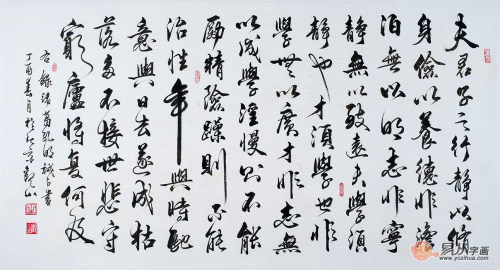 夫君子之行靜以修
身儉以養德非澹
泊無以明志非寧
靜無以致遠夫學須
靜也才須學也非
學無以廣才非志無
以成學淫慢則不能
勵精險躁則不能
治性年與時馳
意與日去遂成枯
落多不接世悲守
窮廬將復何及
右錄諸葛孔明誡子書
丁酉春月於北京觀山
易从字画
www.yczihua.com